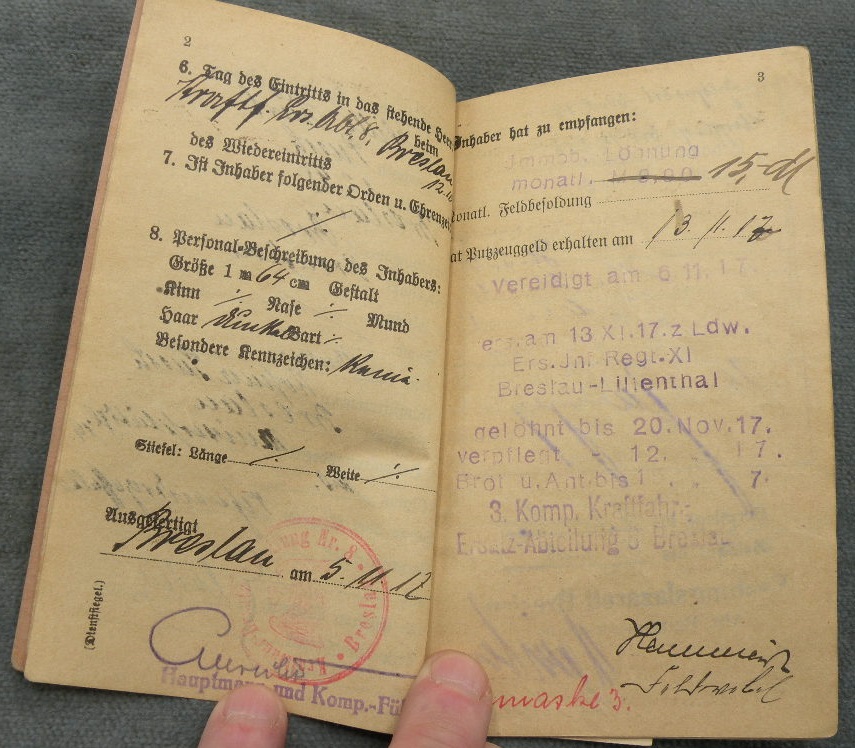 2
6. Tag des Eintritts in das stehende Heer
beim
Kraftf. Ers. Abt. 8, Breslau
12.10
des Wiedereintritts
7. Ist Inhaber folgender Orden u. Ehrenzei
8. Personal-Beschreibung des Inhabers:
Größe 1 m 64 cm Gestalt
Kinn ·/. Nase ·/. Mund
Haar dunkel Bart ·/.
Besondere Kennzeichen: Keine.
Stiefel: Länge ·/. Weite ·/.
Ausgefertigt
Breslau am 5. 11. 17
(Dienstsiegel.)
ung Nr. 8 • Breslau
Hauptmann und Komp.-Fü
3
Inhaber hat zu empfangen:
Immob. Löhnung
monatl. M 9,90 15,- M
onatl. Feldbesoldung
at Putzzeuggeld erhalten am 13. 11. 17
Vereidigt am 6 11. 17.
ers. am 13 XI. 17. z Ldw.
Ers. Inf Regt. XI
Breslau-Lilienthal
gelöhnt bis 20. Nov. 17.
verpflegt - 12. . 17.
Brot u. Ant. bis 1 . . 7.
3. Komp. Kraftfahr-
Ersatz-Abteilung 8 Breslau
Feldwebel
maske 3.